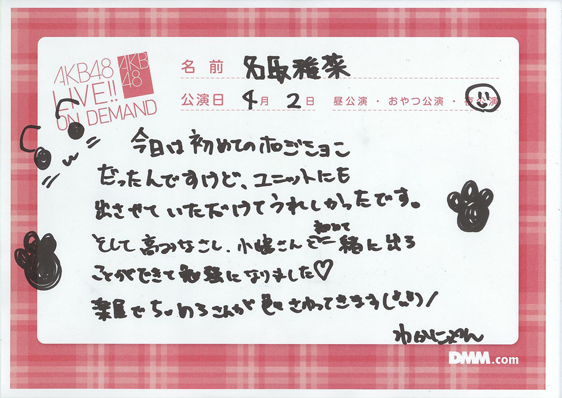 AKB48
LIVE!!
ON DEMAND
AKB
48
名前 名取稚菜
公演日 4月 2日 昼公演・おやつ公演・
今日は初めてのポジション
だったんですけど、ユニットにも
出させていただけてうれしかったです。
初めて
そして高みなさん、小嶋さんと一緒に出る
ことができて勉強になりました♡
楽屋でちゅめろさんが
さわってきます
わかにゃん
DMM.com